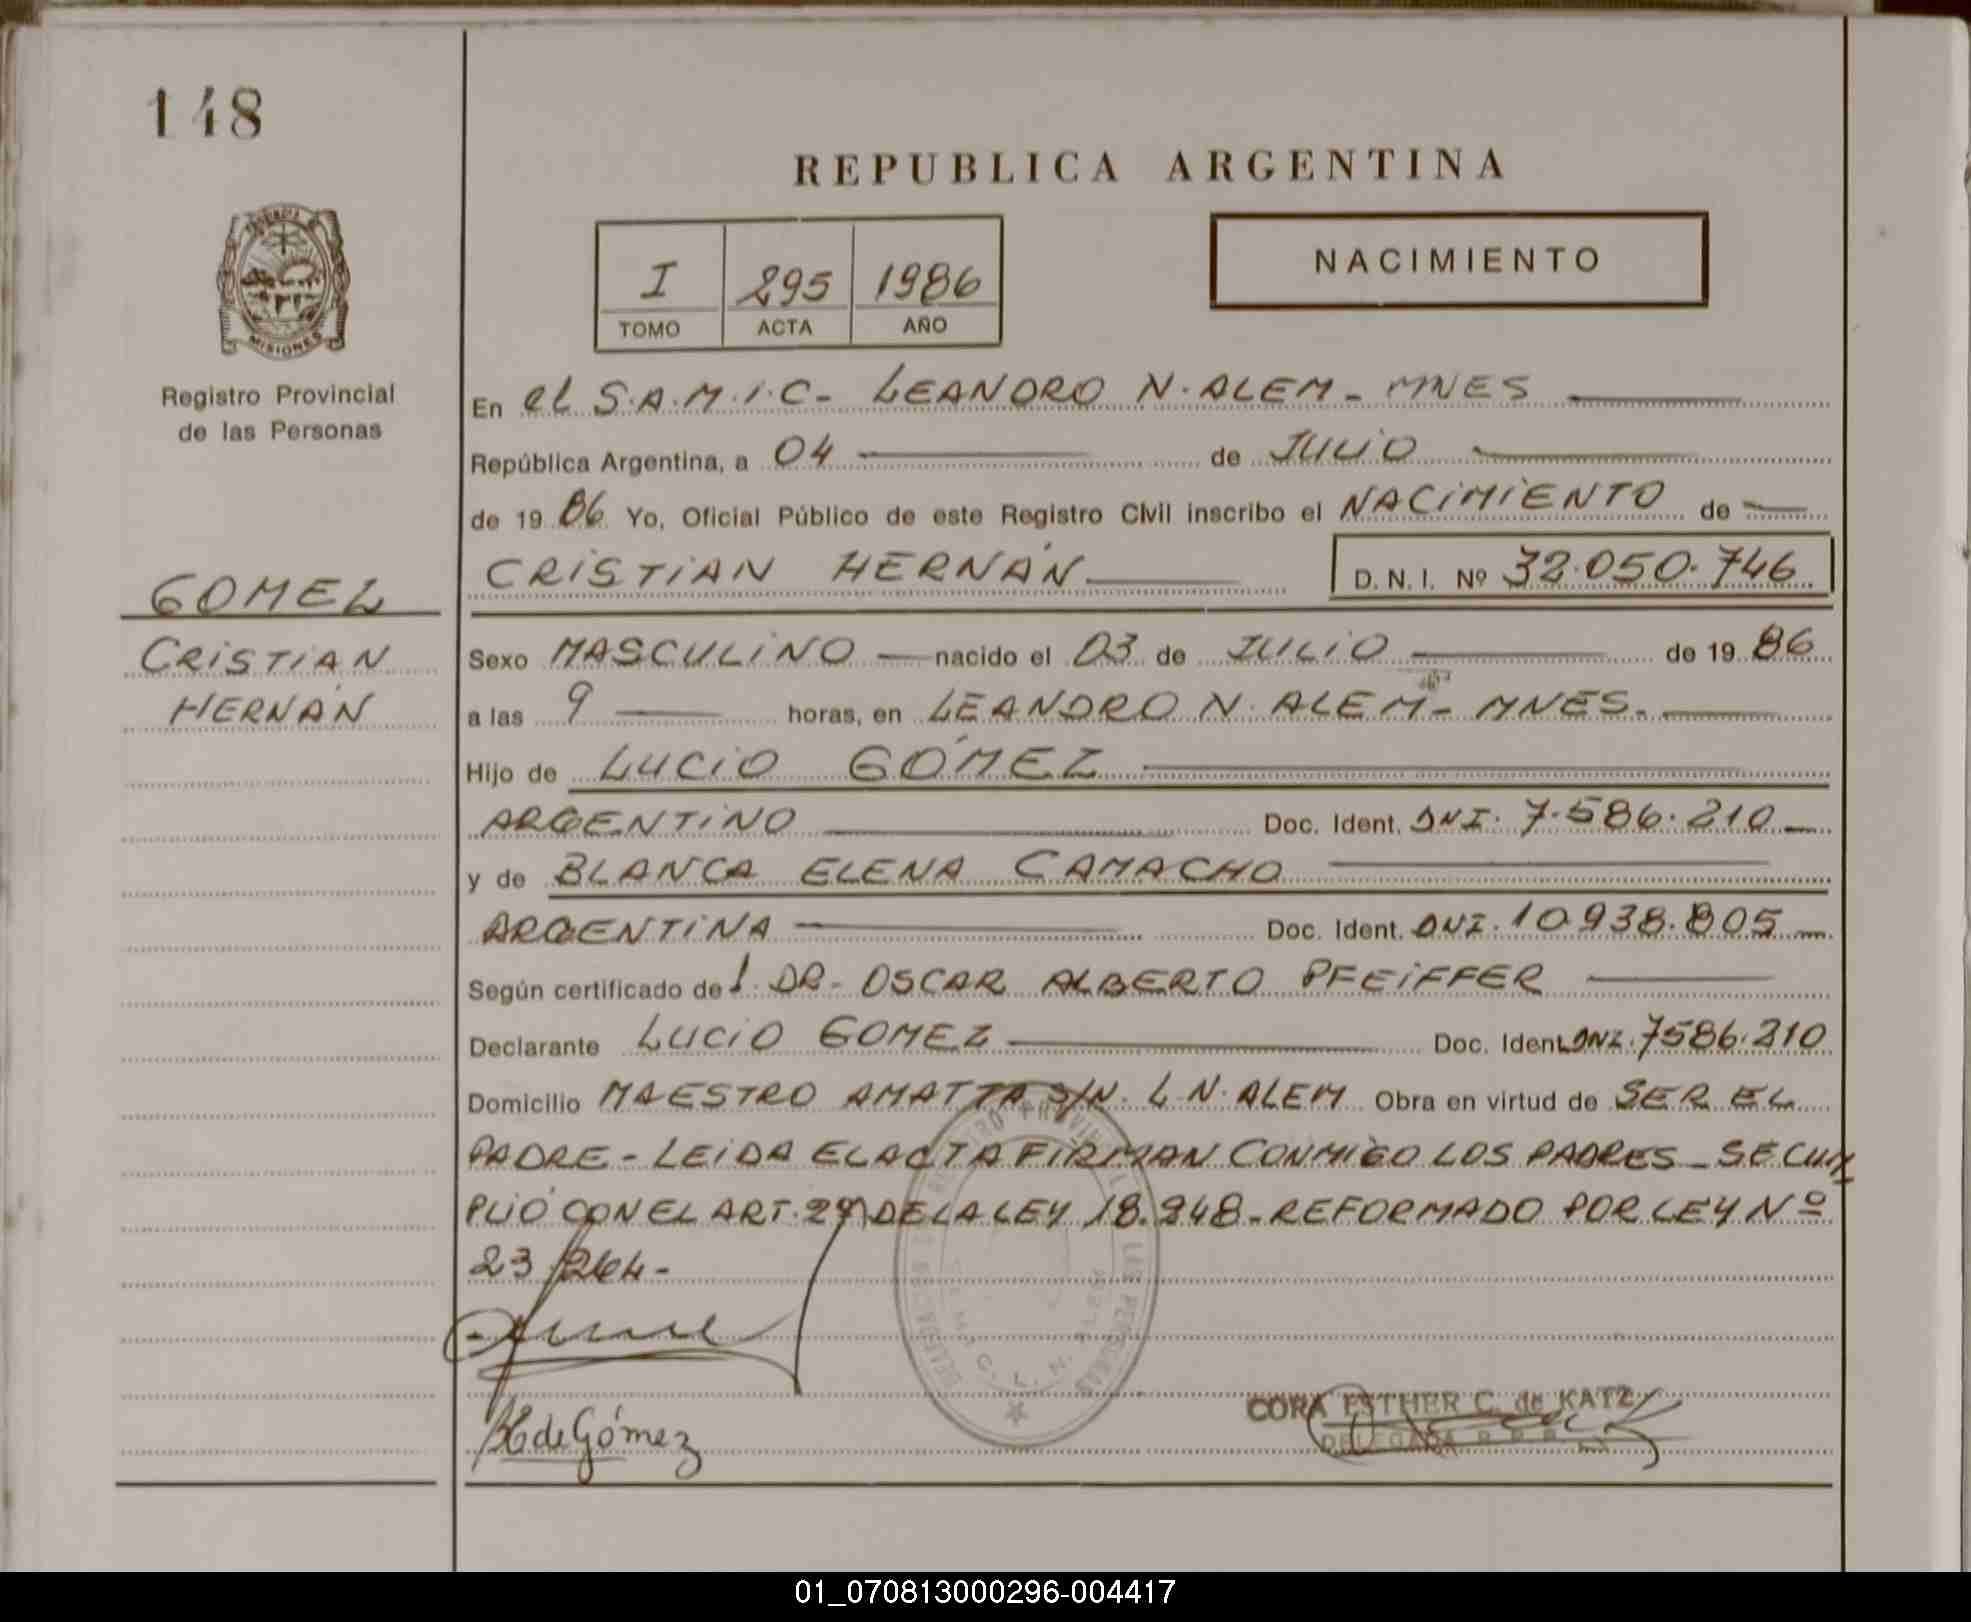 148
REPUBLICA ARGENTINA
NACIMIENTO
I 295 1986
TOMO ACTA AÑO
MISIONES
Registro Provincial
de las Personas
En el S.A.M.I.C- LEANDRO N. ALEM - MNES
República Argentina, a 04 de JULIO
de 1986 Yo, Oficial Público de este Registro Civil inscribo el NACIMIENTO de
CRISTIAN HERNÁN D. N. I. Nº 32.050.746
GOMEZ
CRISTIAN
HERNÁN
Sexo MASCULINO nacido el 03 de JULIO de 1986
a las 9 horas, en LEANDRO N. ALEM - MNES.
Hijo de LUCIO GÓMEZ
ARGENTINO Doc. Ident. DNI. 7.586.210
y de BLANCA ELENA CAMACHO
ARGENTINA Doc. Ident. DNI. 10.938.805
Según certificado del DR. OSCAR ALBERTO PFEIFFER
Declarante LUCIO GOMEZ Doc. Ident. DNI. 7586.210
Domicilio MAESTRO AMATTA S/N. L.N. ALEM Obra en virtud de SER EL
PADRE - LEIDA EL ACTA FIRMAN CONMIGO LOS PADRES - SE CUM
PLIÓ CON EL ART. DE LA LEY 18.248 - REFORMADO POR LEY Nº
23/264-
de Gómez
CORA ESTHER C. de KATZ
DELEGADA
01_070813000296-004417